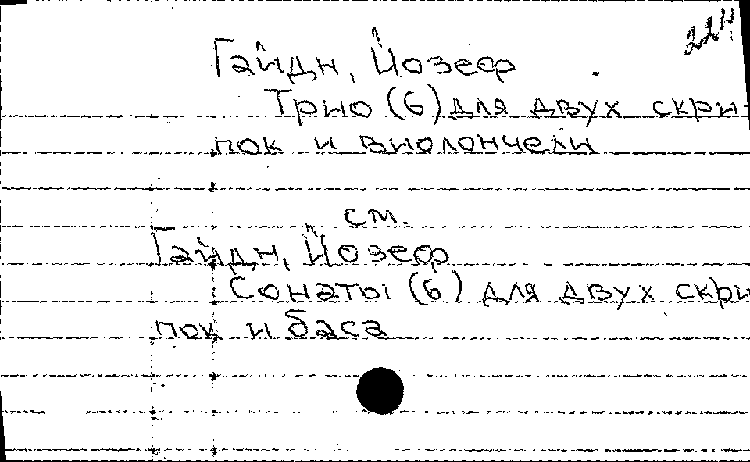 Гайдн, Йозеф
Трио (6) для двух скри
пок и виолончели
см.
Гайдн, Йозеф
Сонаты (6) для двух скри
пок и баса